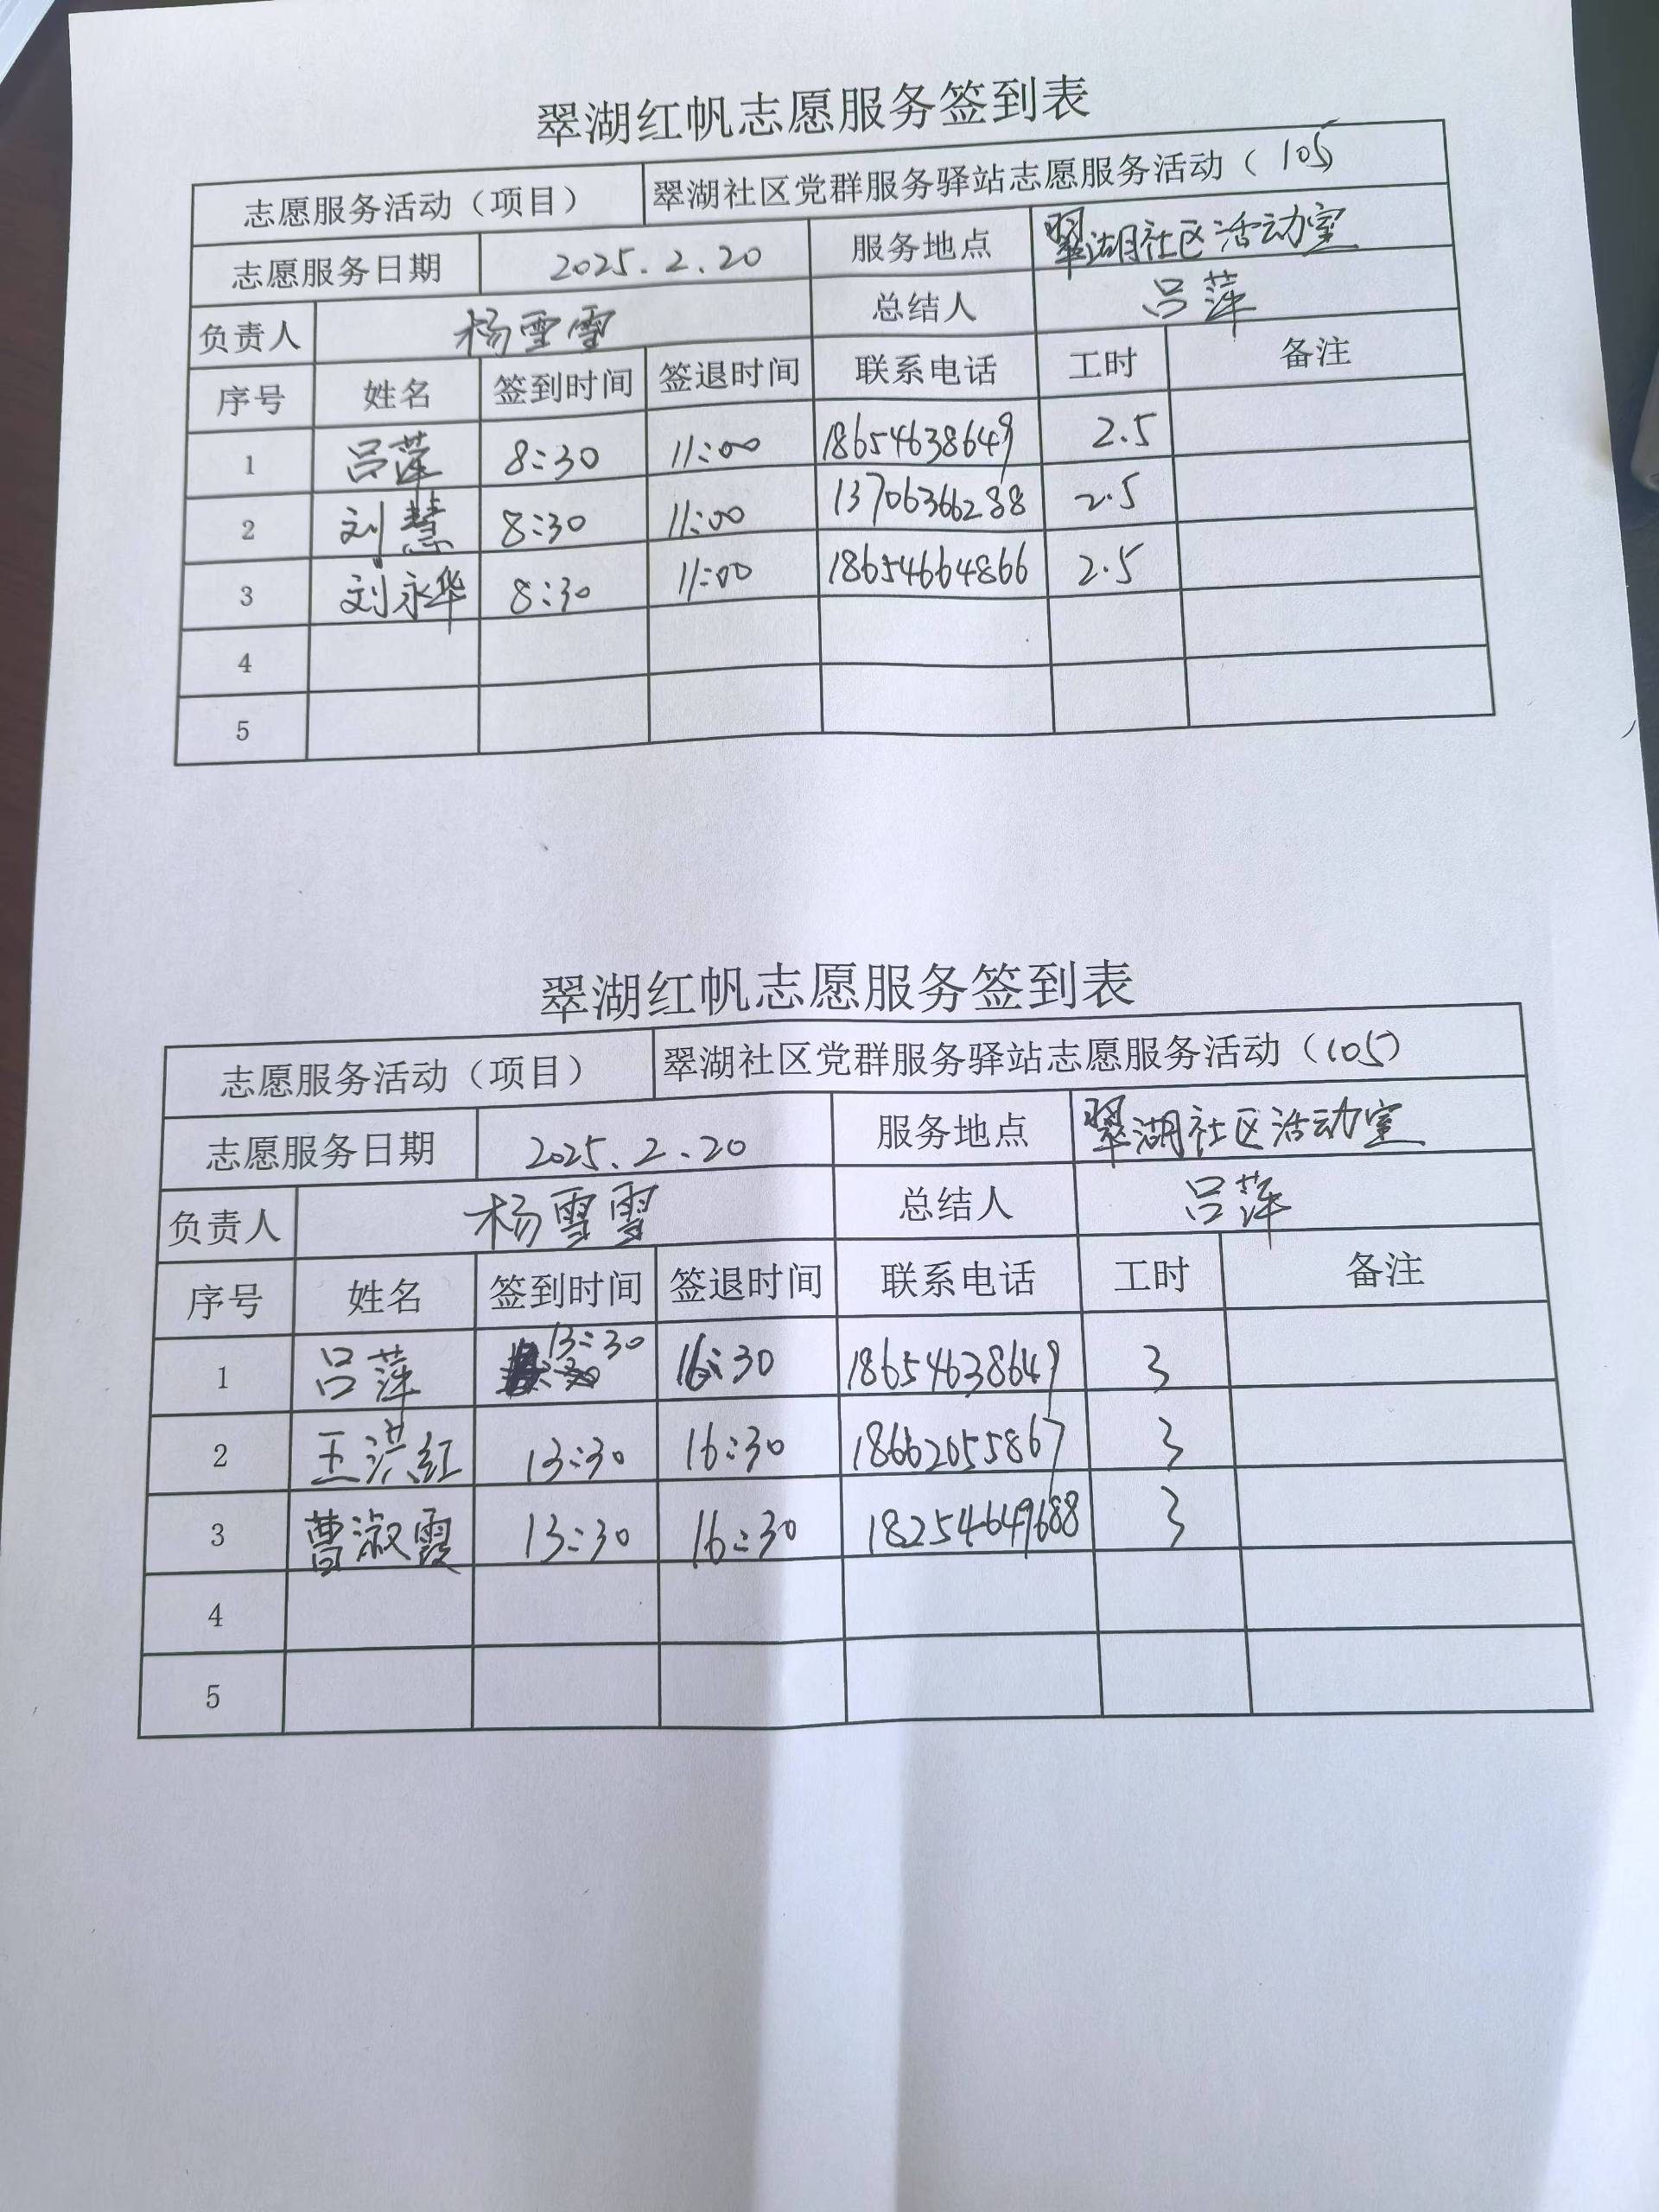 翠湖红帆志愿服务签到表
志愿服务活动（项目） 翠湖社区党群服务驿站志愿服务活动（105
志愿服务日期 2025.2.20 服务地点 翠湖社区活动室
负责人 杨雪雪 总结人 吕萍
序号 姓名 签到时间 签退时间 联系电话 工时 备注
1 吕萍 8:30 11:00 18654638649 2.5
2 刘慧 8:30 11:00 13706366288 2.5
3 刘永华 8:30 11:00 18654664866 2.5
4
5
翠湖红帆志愿服务签到表
志愿服务活动（项目） 翠湖社区党群服务驿站志愿服务活动（105）
志愿服务日期 2025.2.20 服务地点 翠湖社区活动室
负责人 杨雪雪 总结人 吕萍
序号 姓名 签到时间 签退时间 联系电话 工时 备注
1 吕萍 13:30 16:30 18654638649 3
2 王洪红 13:30 16:30 18662055867 3
3 曹淑霞 13:30 16:30 18254649688 3
4
5